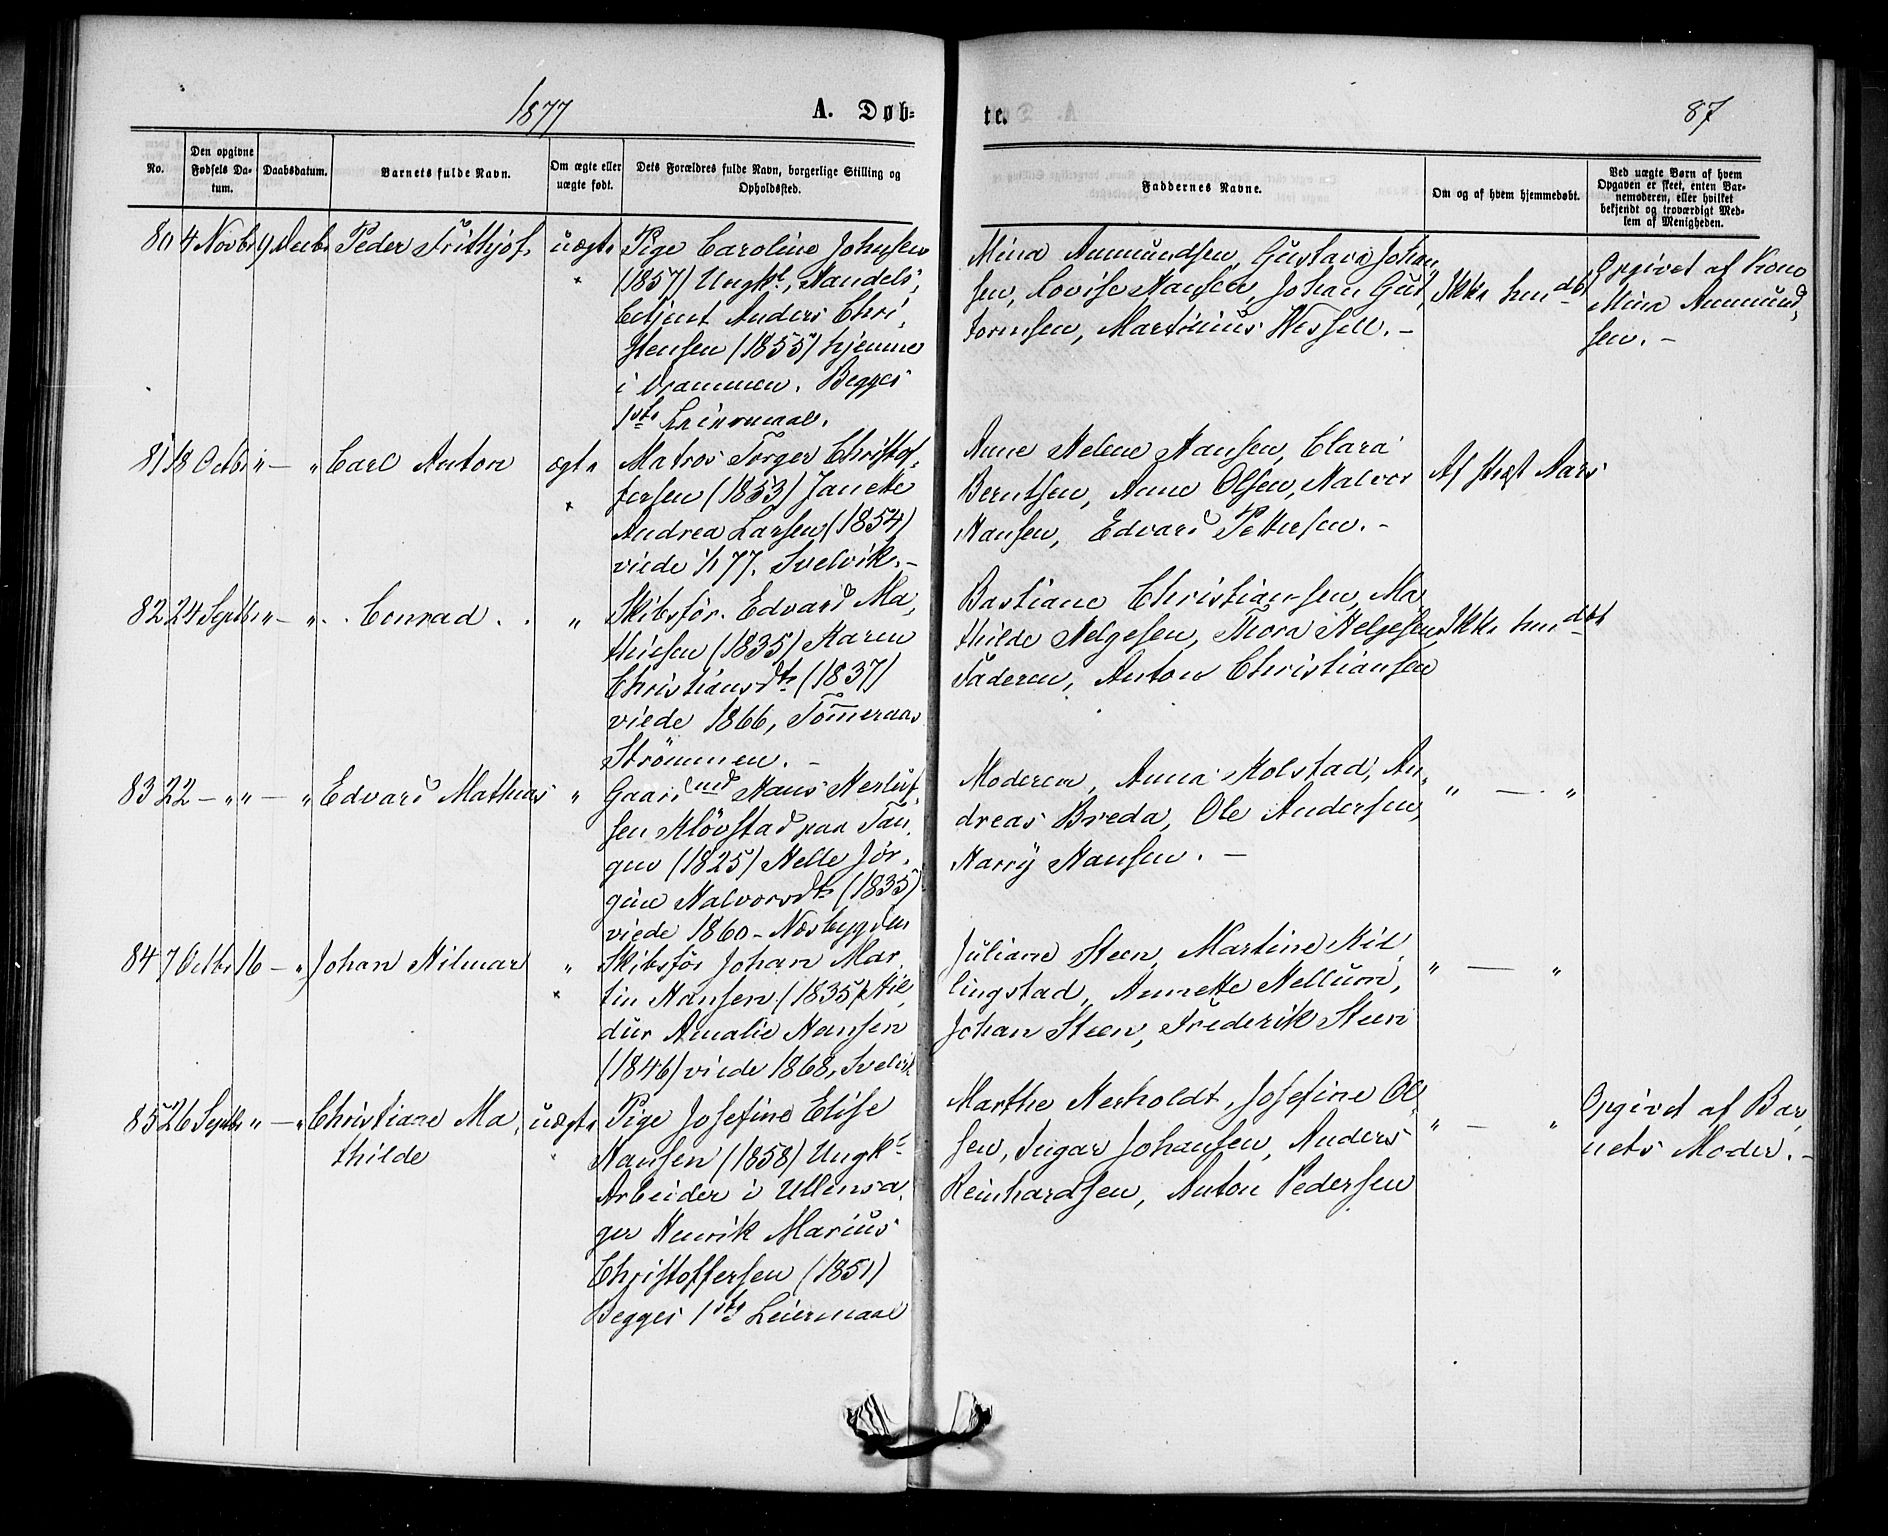 1877
A. Døb-
te.
87
No.
Den opgivne
Fødsels Da-
tum.
Daabsdatum.
Barnets fulde Navn.
Om ægte eller
uægte født.
Dets Forældres fulde Navn, borgerlige Stilling og
Opholdssted.
Faddernes Navne.
Om og af hvem hjemmedøbt.
Ved uægte Børn af hvem
Opgaven er skeet, enten Bar-
nemoderen, eller hvilket
bekjendt og troværdigt Med-
lem af Menigheden.
80 4 Novbr 9 Decbr Peder Frithjof. uægte Pige Caroline Johnsen
(1857) Ungkl, Handels,
betjent Anders Chri,
stensen (1855) hjemme
i Drammen. Begges
1ste Leiermaal.
Mina Aumundsen, Gustava Johan
sen, Lovise Hansen, Johan Gut
tormsen, Martinius Wessell. –
Ikke hmdbt
Opgivet af Kone
Mina Aumund,
sen. –
81 18 Octbr " – " Carl Anton ægte Matros Torger Christof,
fersen (1853) Janette
Andrea Larsen (1854)
viede 1/1 77. Svelvik. –
Anne Helene Hansen, Clara
Berntsen, Anne Olsen, Halvor
Hansen, Edvard Pettersen. –
Af Præst Aars
82 24 Septbr " – " . . Conrad . . " Skibsfør. Edvard Ma,
thisen (1835) Karen
Christiansdtr (1837)
viede 1866, Tømeraas
Strømmen. –
Bastiane Christiansen, Ma
thilde Helgesen, Thora Helgesen
Faderen, Anton Christiansen
Ikke hmdbt
83 22 – " " – " Edvard Mathias " Gaardmd Hans Herluf,
sen Kløvstad paa Tan,
gen (1825) Helle Jør,
gine Halvorsdtr (1835)
viede 1860 – Nesbygden
Moderen, Anna Kolstad, An
dreas Breda, Ole Andersen,
Harry Hansen. –
" – "
84 7 Octbr 16 – " Johan Hilmar " Skibsfør Johan Mar,
tin Hansen (1835) Hil,
dur Amalie Hansen
(1846) viede 1868, Svelvik
Juliane Steen, Martine Kil,
lingstad, Annette Nellum,
Johan Steen, Frederik Steen
" – "
85 26 Septbr " – " Christiane Ma, uægte Pige Josefine Elise
thilde
Hansen (1858) Ungkl
Arbeider i Ullensa,
ger Henrik Marius
Christoffersen (1851)
Begges 1ste Leiermaal
Marthe Nerholdt, Josefine Ol
sen, Ingar Johansen, Anders
Reinhardsen, Anton Pedersen
" – "
Opgivet af Bar,
nets Moder. –